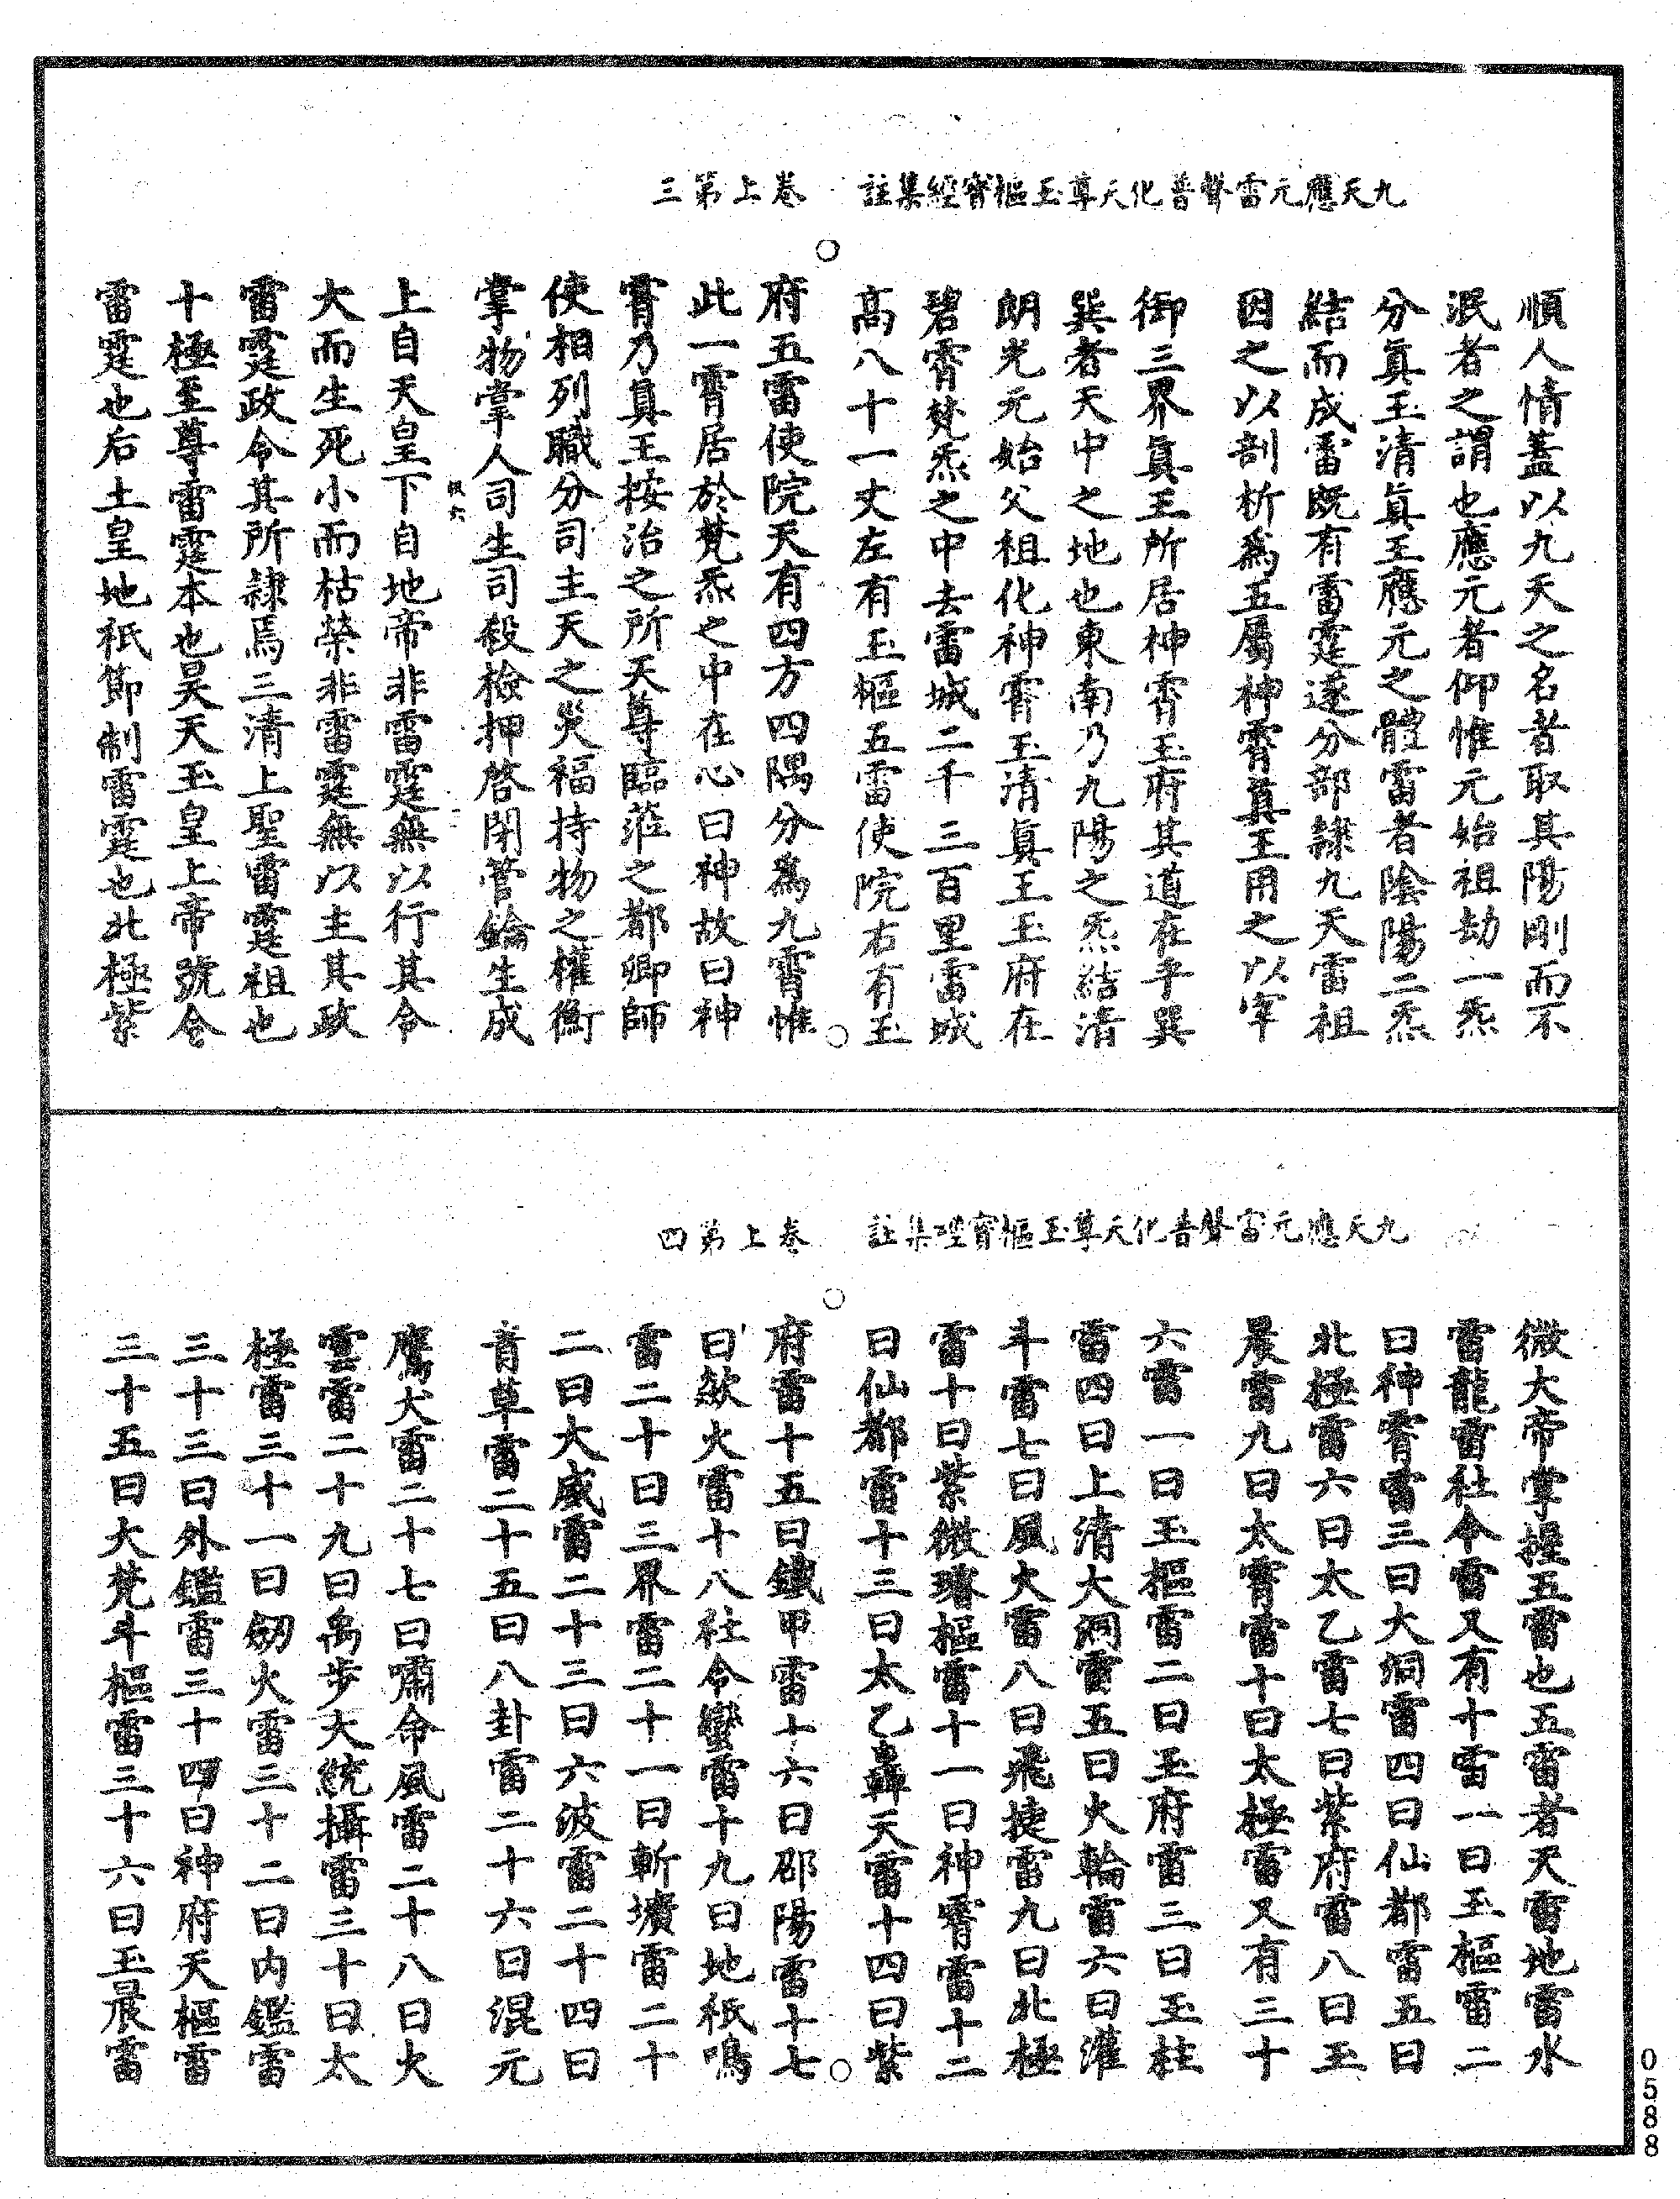 九天應元雷聲普化天尊玉樞寶經集註　卷上第三
順人情蓋以九天之名者取其陽剛而不
泯者之謂也應元者仰惟元始祖劫一炁
分真玉清真王應元之體雷者陰陽二炁
結而成雷既有雷霆遂分部隸九天雷祖
因之以剖析為五屬神霄真王用之以宰
御三界真王所居神霄玉府其道在乎巽
巽者天中之地也東南乃九陽之炁結清
朗光元始父祖化神霄玉清真王玉府在
碧霄梵炁之中去雷城二千三百里雷城
高八十一丈左有玉樞五雷使院右有玉
府五雷使院天有四方四隅分為九霄惟
此一霄居於梵炁之中在心曰神故曰神
霄乃真王按治之所天尊臨蒞之都卿師
使相列職分司主天之災福持物之權衡
掌物掌人司生司殺檢押啓閉管鑰生成
上自天皇下自地帝非雷霆無以行其令
大而生死小而枯榮非雷霆無以主其政
雷霆政令其所隸焉三清上聖雷霆祖也
十極至尊雷霆本也昊天玉皇上帝號令
雷霆也后土皇地祇節制雷霆也北極紫
九天應元雷聲普化天尊玉樞寶經集註　卷上第四
微大帝掌握五雷也五雷者天雷地雷水
雷龍雷社令雷又有十雷一曰玉樞雷二
曰神霄雷三曰大洞雷四曰仙都雷五曰
北極雷六曰太乙雷七曰紫府雷八曰玉
晨雷九曰太霄雷十曰太極雷又有三十
六雷一曰玉樞雷二曰玉府雷三曰玉柱
雷四曰上清大洞雷五曰火輪雷六曰灌
斗雷七曰風火雷八曰飛捷雷九曰北極
雷十曰紫微璿樞雷十一曰神霄雷十二
曰仙都雷十三曰太乙轟天雷十四曰紫
府雷十五曰鐵甲雷十六曰邵陽雷十七
曰歘火雷十八社令蠻雷十九曰地祇鳴
雷二十曰三界雷二十一曰斬壙雷二十
二曰大威雷二十三曰六波雷二十四曰
青草雷二十五曰八卦雷二十六曰混元
鷹犬雷二十七曰嘯命風雷二十八曰火
雲雷二十九曰禹步大統攝雷三十曰太
極雷三十一曰劒火雷三十二曰內鑑雷
三十三曰外鑑雷三十四曰神府天樞雷
三十五曰大梵斗樞雷三十六曰玉晨雷
0588